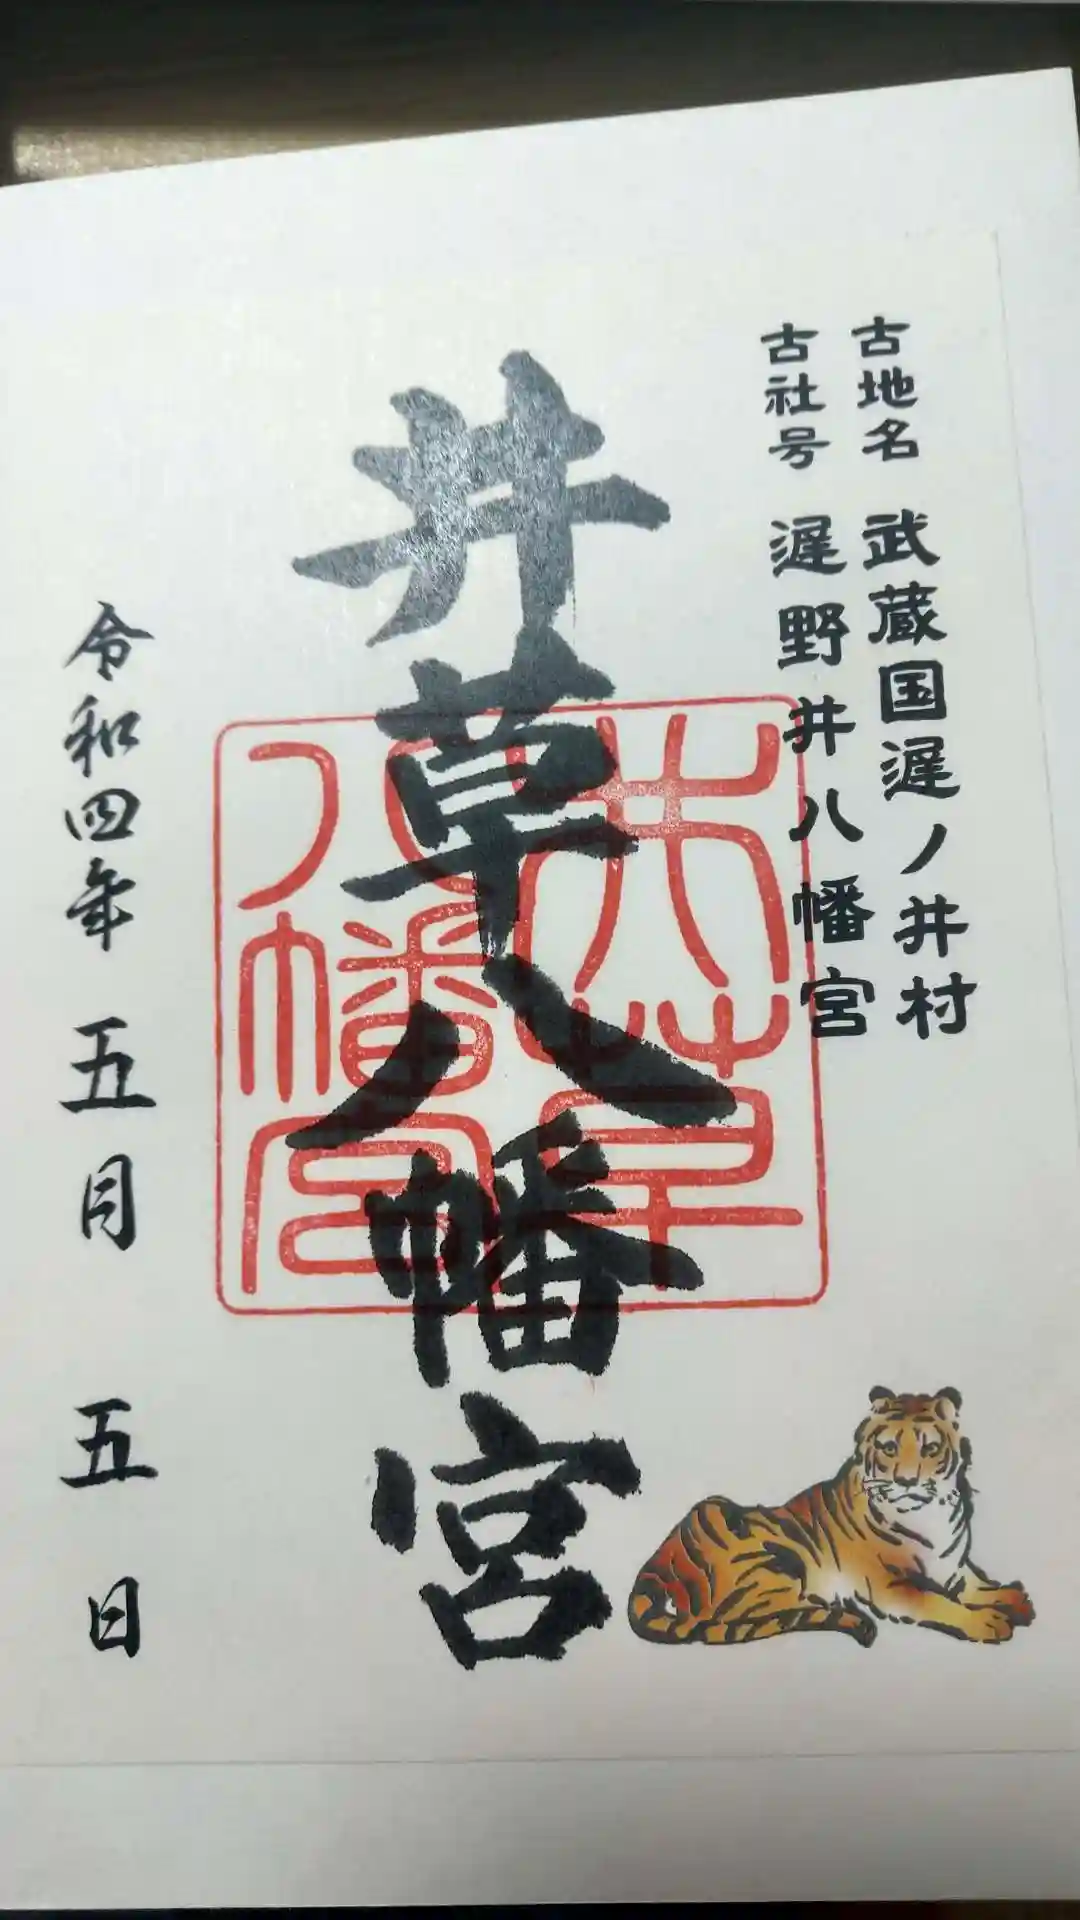 古地名 武蔵国遅ノ井村
古社号 遅野井八幡宮
井草八幡宮
井草
八幡宮
令和四年 五月 五日